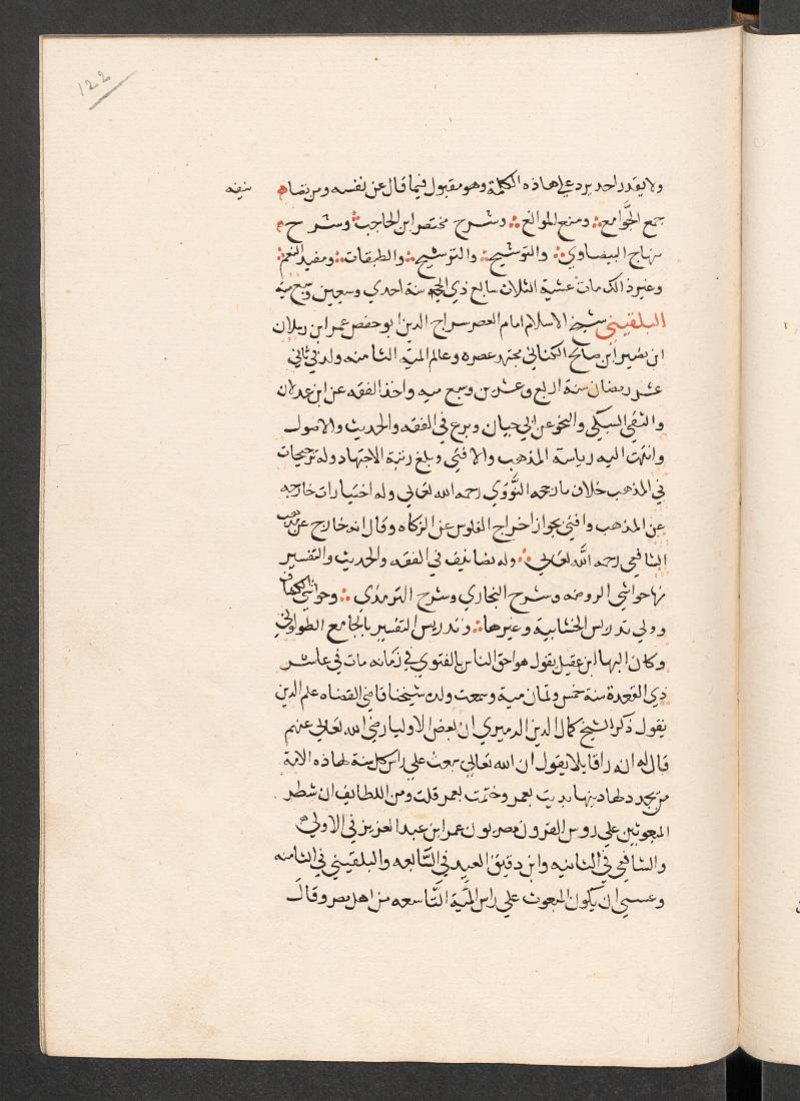 122
ولا يقدر احد يرد علي هاذه الكلمة وهو مقبول فيما قال عن نفسه ومن تصا نيفه
جمع الجَّوامع ومنع الموانع وشرح مختصر ابن الحاجب وشرح
منهاج البيضاوي والتوشيح والترشيح والطبقات ومفيد النعم
وغير ذالك مات عشية الثلاث سابع ذي الحجه سنة احدي وسبعين وسبع ميه
البلقيني شيخ الاسلام امام العصر سراج الدين ابو حفص عمر ابن رسلان
ابن نصير ابن صالح الكناني مجتهد عصره وعالم الميه الثامنه ولد في ثاني
عشر رمضان سنة اربع وعشرين وسبع ميه واخذ الفقه عن ابن عدلان
والتقي السبكي والنحو عن ابي حيان وبرع في الفقه والحديث والاصول
وانتهت اليه رياسة المذهب والافتي وبلغ رتبة الاجتهاد وله ترجيحات
في المذهب خلاف ما رجحه النَّووي رحمه الله تعالي وله اختيارات خارجه
عن المذهب وافتي بجواز اخراج الفلوس عن الزكاه وقال انه خارج عن مذهب
الشافعي رحمه الله تعالي وله تصانيف في الفقه والحديث والتفسير
منها حواشي الروضه وشرح البخاري وشرح الترمذي وحواشي الكشاف
وولي تدريس الخشابية وغيرها وتدريس التفسير بالجامع الطولوني
وكان البها ابن عقيل يقول هو احق الناس بالفتوي في زمانه مات في عاشر
ذي القعدة سنة خمس وثمان مية وسمعت ولده شيخنا قاضي القضاه علم الدين
يقول ذكر الشيخ كمال الدين الدميري ان بعض الاوليا رضي الله تعالي عنهم
قال له انه راقا يلا يقول ان الله تعالي يبعث علي راس كل مية لهاذه الامة
من يجدد لها دينها بديت بعمر وختمت بعمر قلت ومن اللطايف ان شطر
المبعوثين علي روس القرون مصريون عمر ابن عبد العزيز في الاولي
والشافعي في الثانيه وابن دقيق العيد في السَّابعه والبلقيني في الثامنه
وعسي ان يكون المبعوث علي راس المَية التَّاسعه من اهل مصر وقال